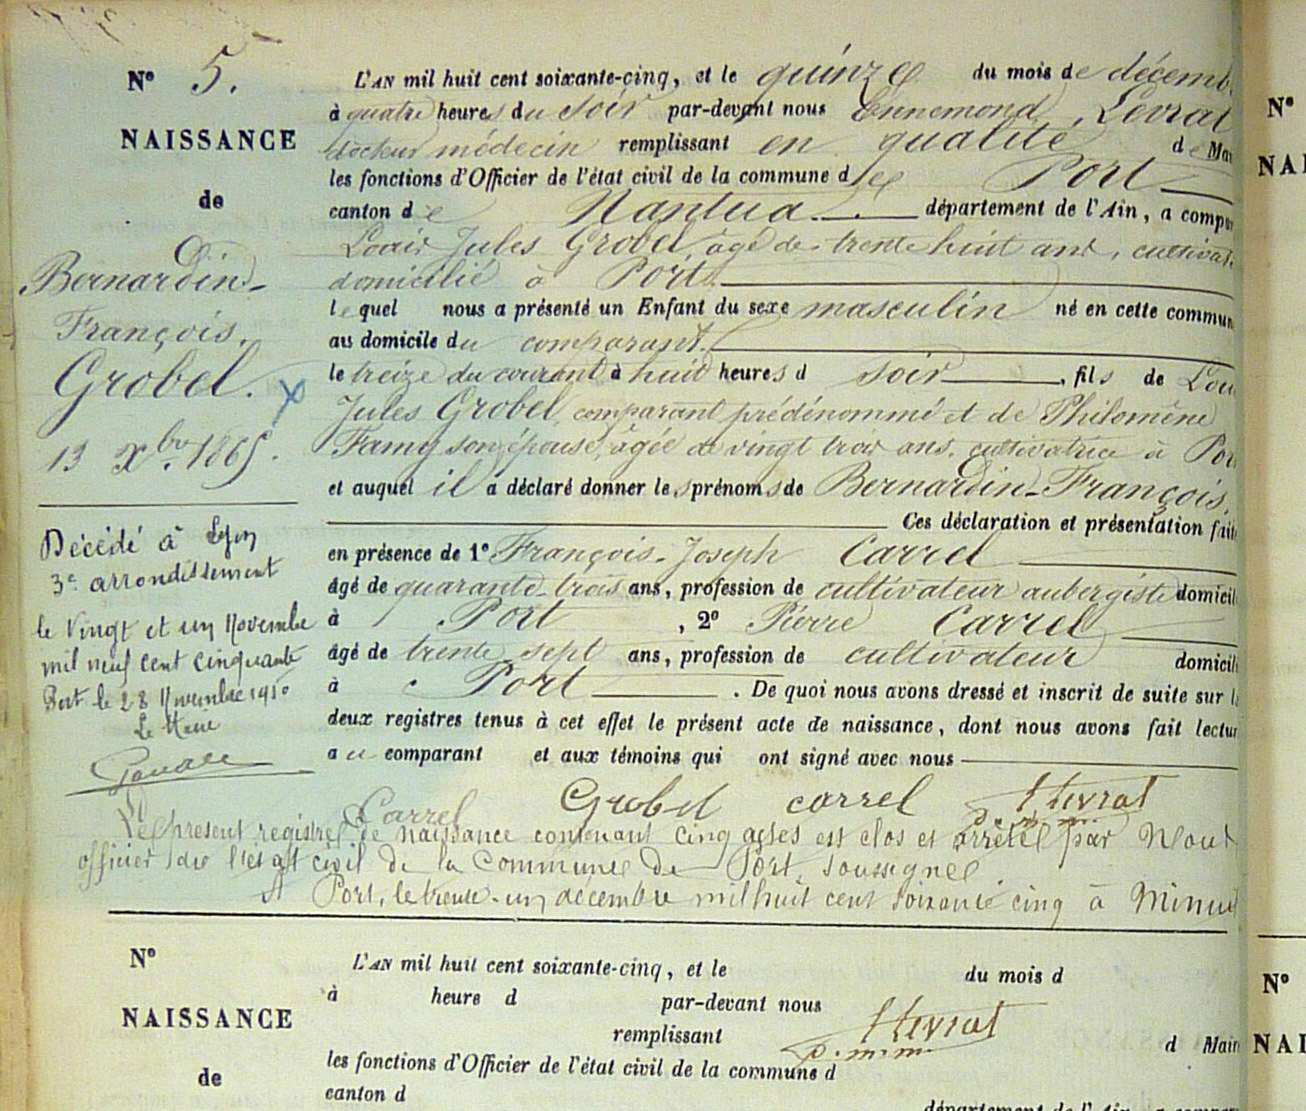 N° 5.
NAISSANCE
de
Bernardin-
François.
Grobel.
13 Xbre 1865.
Décédé à Lyon
3e arrondissement
le vingt et un Novembre
mil neuf cent cinquante
Port le 28 Novembre 1950
Le Maire
L'AN mil huit cent soixante-cinq, et le quinze du mois de décemb
à quatre heures du soir par-devant nous Ennemond Levrat
docteur médecin remplissant en qualité de Mai
les fonctions d'Officier de l'état civil de la commune de Port
canton de Nantua département de l'Ain, a compar
Louis Jules Grobel, âgé de trente huit ans, cultivat
domicilié à Port
lequel nous a présenté un Enfant du sexe masculin né en cette commun
au domicile du comparant.
le treize du courant à huit heures d soir , fils de Lou
Jules Grobel, comparant prédénommé et de Philomène
Famy son épouse, âgée de vingt trois ans, cultivatrice à Por
et auquel il a déclaré donner les prénoms de Bernardin-François.
Ces déclaration et présentation fait
en présence de 1° François-Joseph Carrel
âgé de quarante-trois ans, profession de cultivateur aubergiste domicil
à Port , 2° Pierre Carrel
âgé de trente sept ans, profession de cultivateur domicil
à Port . De quoi nous avons dressé et inscrit de suite sur l
deux registres tenus à cet effet le présent acte de naissance, dont nous avons fait lectur
au comparant et aux témoins qui ont signé avec nous
Carrel Grobel carrel Levrat
d. m. m.
Le présent registre de naissance contenant cinq actes est clos et arrêté par Nous
officier de l'état civil de la Commune de Port, soussigné
A Port, le trente-un décembre mil huit cent soixante cinq à Minui
N°
NAISSANCE
de
L'AN mil huit cent soixante-cinq, et le du mois d
à heure d par-devant nous
remplissant Levrat d. m. m. d Mair
les fonctions d'Officier de l'état civil de la commune d
canton d
département de l'Ain, a compar
N°
NAI
N°
NAI